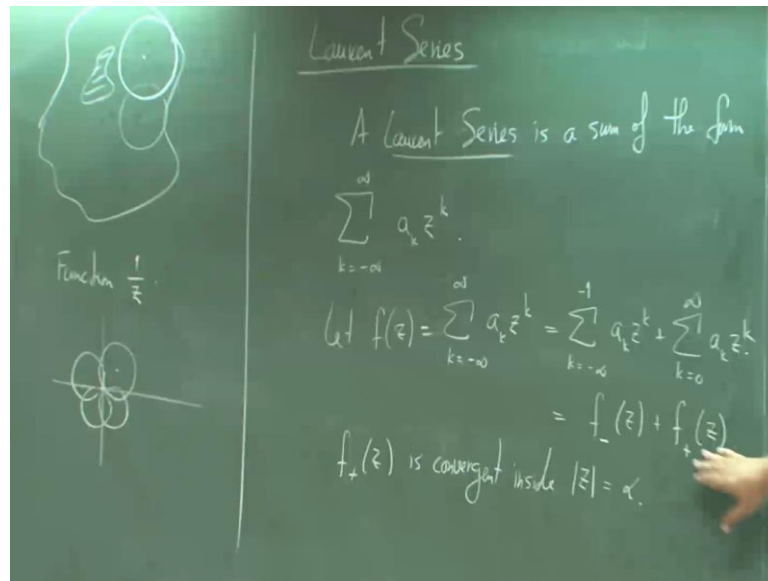 Function 1/z.
Laurent Series
A Laurent Series is a sum of the form
∑_{k=-∞}^{∞} a_k z^k.
Let f(z) = ∑_{k=-∞}^{∞} a_k z^k = ∑_{k=-∞}^{-1} a_k z^k + ∑_{k=0}^{∞} a_k z^k.
= f_-(z) + f_+(z)
f_+(z) is convergent inside |z| = α.